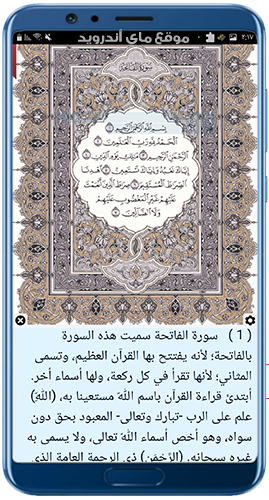 موقع ماي أندرويد
٢:١٧
سورة الفاتحة
بِسْمِ اللَّهِ الرَّحْمَٰنِ الرَّحِيمِ ١
الْحَمْدُ لِلَّهِ رَبِّ الْعَالَمِينَ ٢
الرَّحْمَٰنِ الرَّحِيمِ ٣ مَالِكِ يَوْمِ الدِّينِ ٤
إِيَّاكَ نَعْبُدُ وَإِيَّاكَ نَسْتَعِينُ ٥ اهْدِنَا
الصِّرَاطَ الْمُسْتَقِيمَ ٦ صِرَاطَ الَّذِينَ أَنْعَمْتَ
عَلَيْهِمْ غَيْرِ الْمَغْضُوبِ عَلَيْهِمْ
وَلَا الضَّالِّينَ ٧
( 1 ) سورة الفاتحة سميت هذه السورة
بالفاتحة؛ لأنه يفتتح بها القرآن العظيم، وتسمى
المثاني؛ لأنها تقرأ في كل ركعة، ولها أسماء أخر.
أبتدئ قراءة القرآن باسم الله مستعينا به، (اللهِ)
علم على الرب -تبارك وتعالى- المعبود بحق دون
سواه، وهو أخص أسماء الله تعالى، ولا يسمى به
غيره سبحانه. (الرَّحْمَنِ) ذي الرحمة العامة الذي